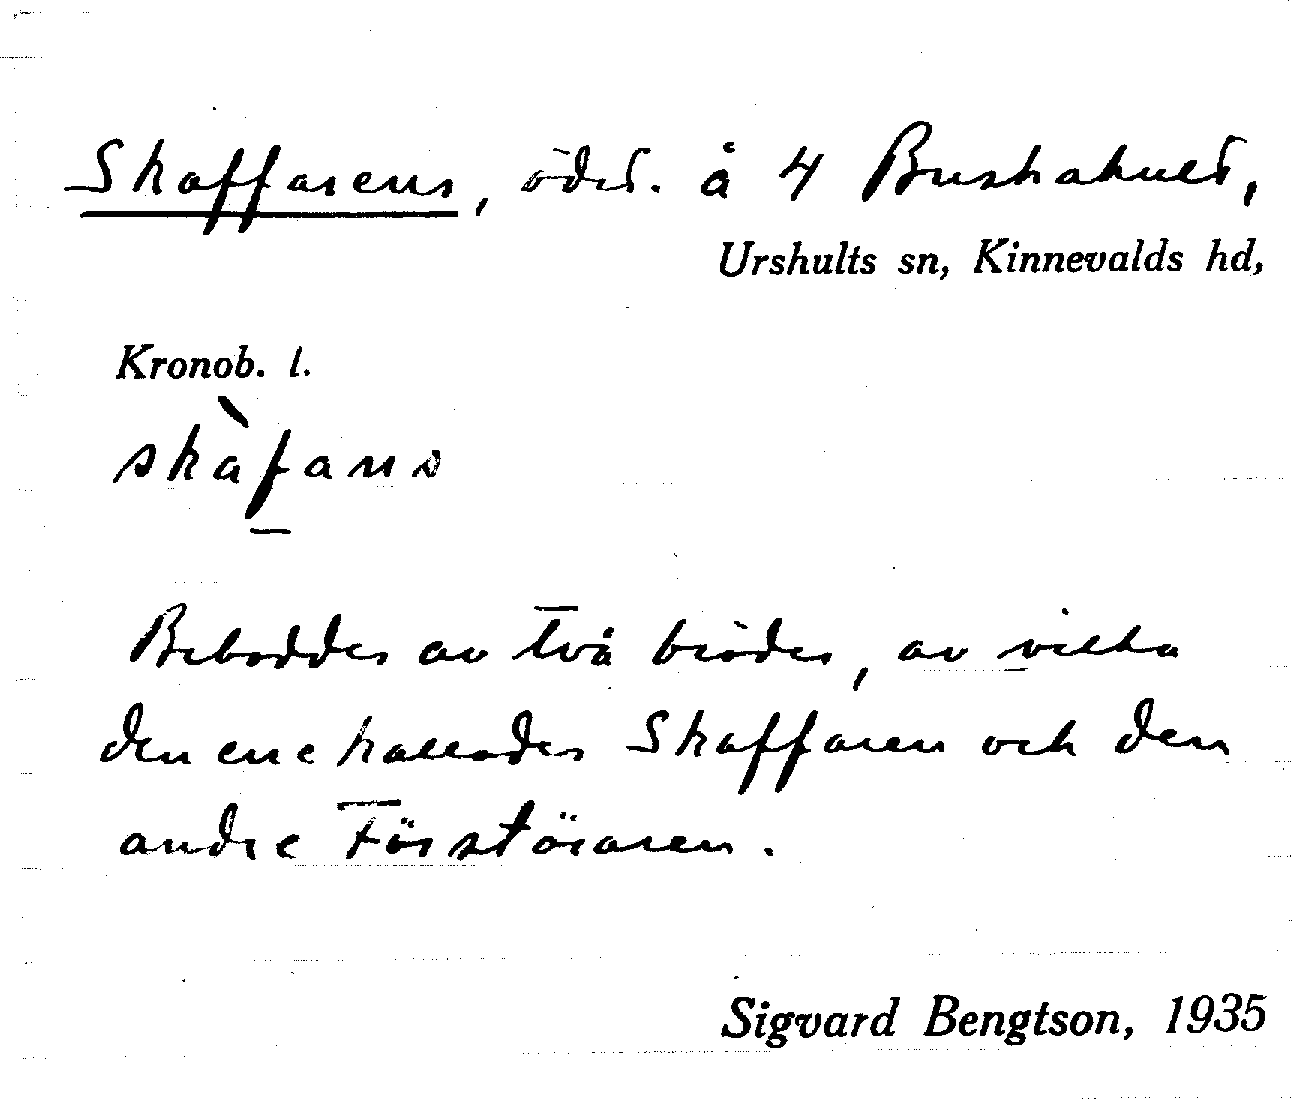 Skaffarens, ödet. å 4 Buskahult,
Urshults sn, Kinnevalds hd,
Kronob. l.
skàfans
Beboddes av två bröder, av vilka
den ene kallades Skaffaren och den
andre Förstöraren.
Sigvard Bengtson, 1935